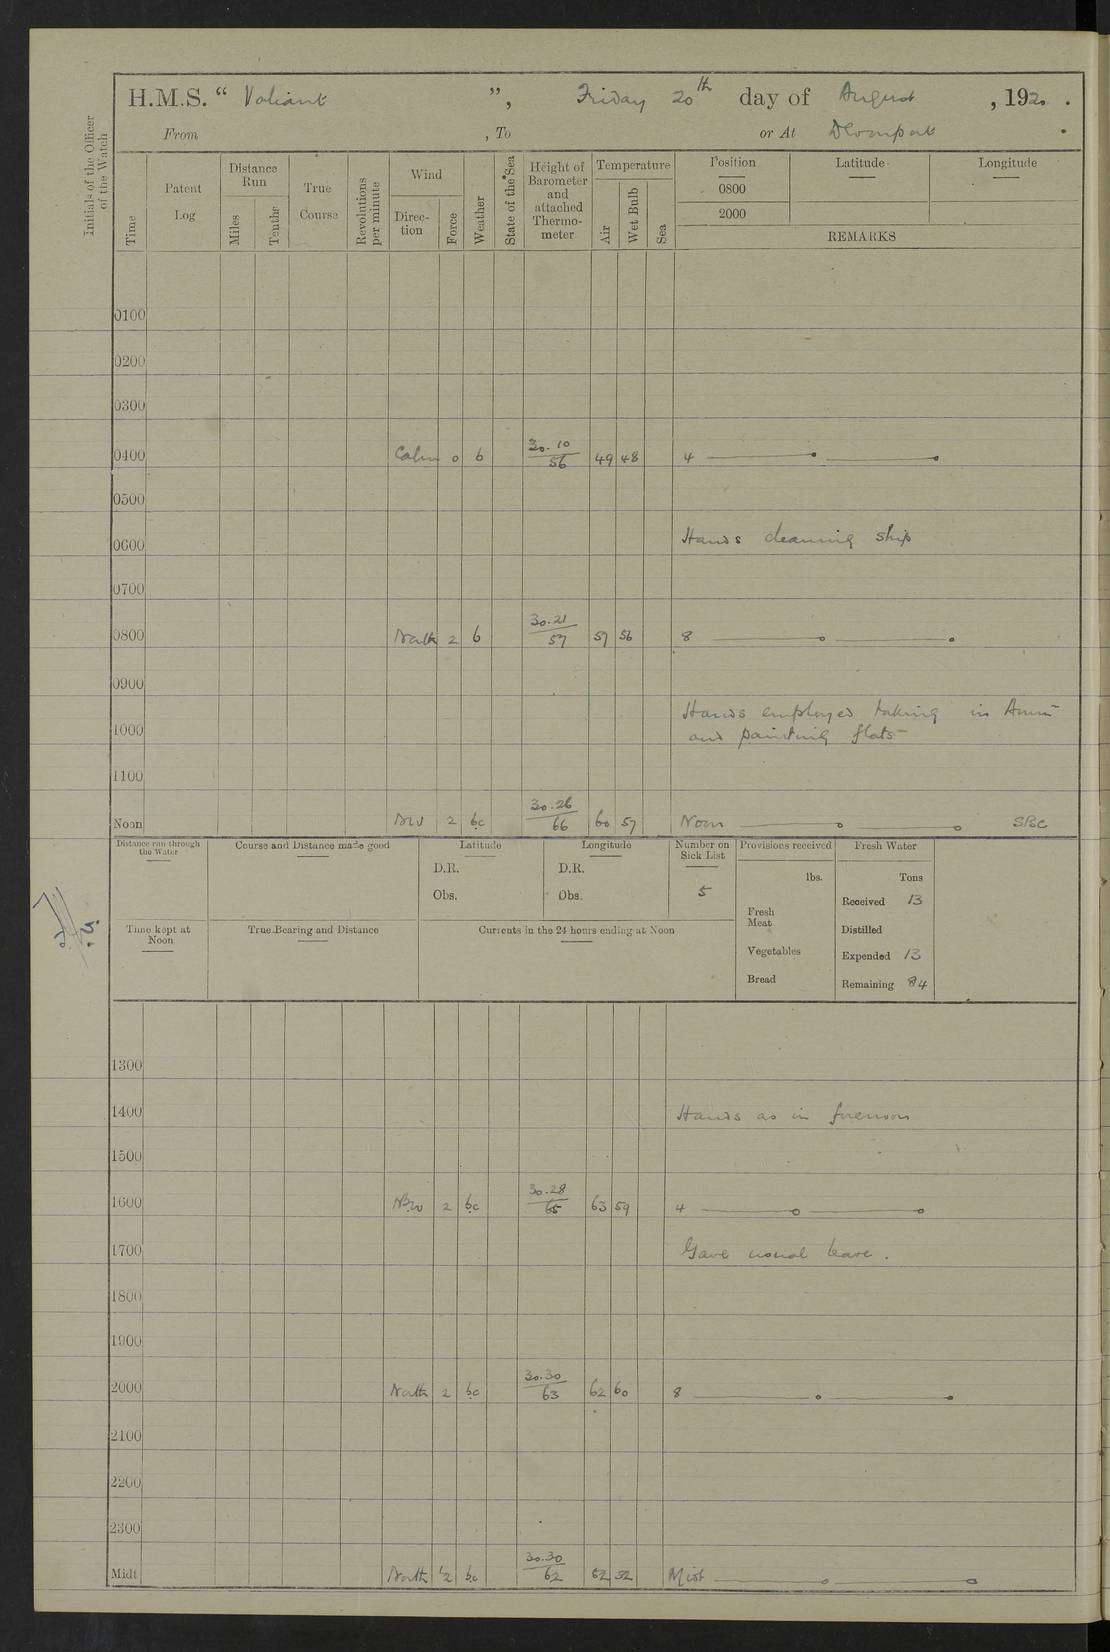 H.M.S. “ Valiant ”, Friday 20th day of August , 1920 .
From , To or At Devonport .
Initials of the Officer of the Watch
Time
Patent Log
Distance Run
Miles
Tenths
True Course
Revolutions per minute
Wind
Direction
Force
Weather
State of the Sea
Height of Barometer and attached Thermometer
Temperature
Air
Wet Bulb
Sea
Position Latitude Longitude
0800
2000
REMARKS
0100
0200
0300
0400 Calm 0 b 30.10/56 49 48 4
0500
0600 Hands cleaning ship
0700
0800 North 2 b 30.21/57 57 56 8
0900
Hands employed taking in Ammn
1000 and painting flats
1100
Noon NW 2 bc 30.26/66 60 57 Noon SBC
Distance run through the Water
Course and Distance made good
Latitude
D.R.
Obs.
Longitude
D.R.
Obs.
Number on Sick List
5
Provisions received
lbs.
Fresh Meat
Vegetables
Bread
Fresh Water
Tons
Received 13
Distilled
Expended 13
Remaining 84
Time kept at Noon
True Bearing and Distance
Currents in the 24 hours ending at Noon
1300
1400 Hands as in forenoon
1500
1600 2 bc 30.28/65 63 59 4
1700 Gave usual leave .
1800
1900
2000 North 2 bc 30.30/63 62 60 8
2100
2200
2300
Midt North 2 bc 30.30/62 52 Midt